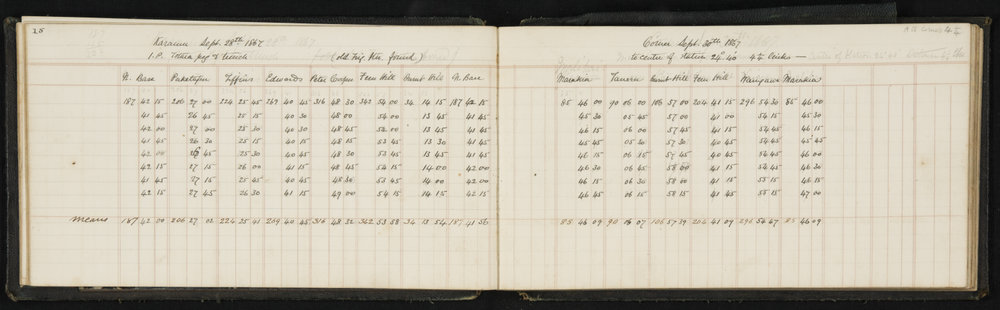 25
Karamu Sept. 28th 1867
I.P. Totara peg & trench (old Trig. Stn. found)
N. Base Puketapu Tiffins Edwards Peta Cooper Fern Hill Burnt Hill N. Base
187 42 15 206 27 00 224 25 45 269 40 45 316 48 30 342 54 00 34 14 15 187 42 15
41 45 26 45 25 15 40 30 48 00 54 00 13 45 41 45
42 00 27 00 25 30 40 30 48 45 54 00 13 45 42 00
41 45 26 30 25 15 40 15 48 15 53 45 13 30 41 45
42 00 26 45 25 30 40 45 48 30 53 45 13 45 42 00
42 15 27 15 26 00 41 15 48 45 54 15 14 00 42 00
41 45 27 15 25 45 40 45 48 30 53 45 14 00 42 00
42 15 27 45 26 30 41 15 49 00 54 15 14 15 42 15
means 187 42 00 206 27 02 224 25 41 269 40 45 316 48 32 342 53 58 34 13 54 187 41 56
Sept. 30th 1867
to centre of Station 24" 40' 4¼ links —
Tavern Burnt Hill Fern Hill
85 46 00 90 06 00 106 57 00 204 41 15 296 54 30 85 46 00
45 30 05 45 57 00 41 00 54 15 45 30
46 15 06 00 57 45 41 15 54 45 46 15
45 45 05 30 57 30 40 45 54 45 45 45
46 15 06 15 57 45 40 45 54 45 46 00
46 30 06 45 58 00 41 15 55 00 46 30
46 15 06 30 58 00 41 15 55 15 46 15
46 45 06 15 58 15 41 45 55 15 47 00
85 46 09 90 07 106 57 39 204 41 09 296 54 47 85 46 09